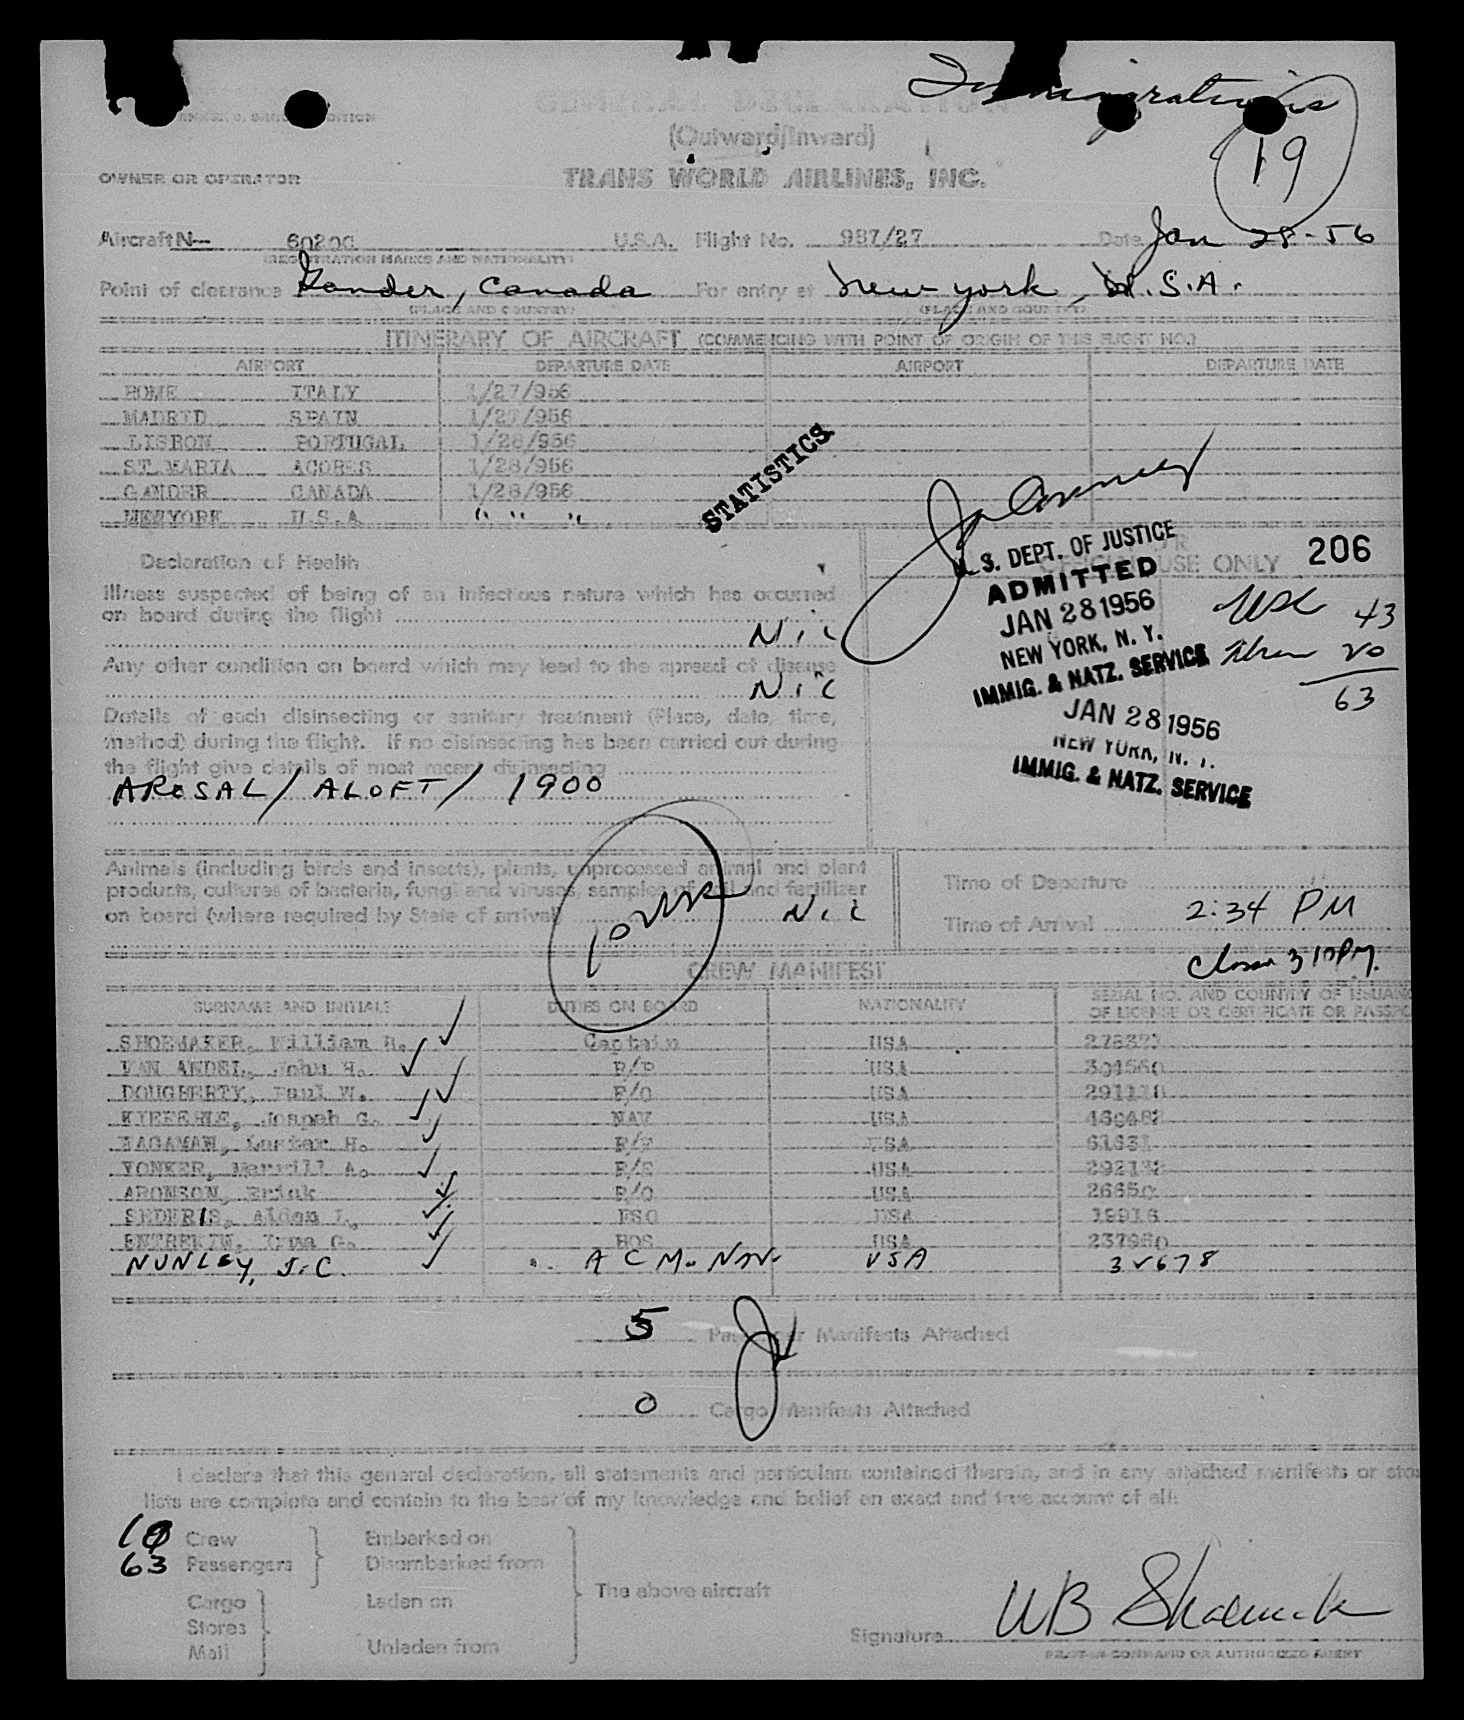 Immigration is
GENERAL DECLARATION
(Outward/Inward)
19
OWNER OR OPERATOR TRANS WORLD AIRLINES, INC.
Aircraft N- U.S.A. Flight No. 987/27 Date Jan 28-56
(REGISTRATION MARKS AND NATIONALITY)
Point of clearance Gander, Canada For entry at New York, U.S.A.
(PLACE AND COUNTRY) (PLACE AND COUNTRY)
ITINERARY OF AIRCRAFT (COMMENCING WITH POINT OF ORIGIN OF THIS FLIGHT NO.)
AIRPORT DEPARTURE DATE AIRPORT DEPARTURE DATE
ROME ITALY 1/27/956
MADRID SPAIN 1/27/956
LISBON PORTUGAL 1/28/956
ST.MARIA ACORES 1/28/956
GANDER CANADA 1/28/956
NEWYORK U.S.A " " "
STATISTICS
Declaration of Health
Illness suspected of being of an infectious nature which has occurred
on board during the flight
Nil
Any other condition on board which may lead to the spread of disease
Nil
Details of each disinsecting or sanitary treatment (Place, date, time,
method) during the flight. If no disinsecting has been carried out during
the flight give details of most recent disinsecting
AROSAL/ALOFT/1900
FOR
OFFICIAL USE ONLY 206
U.S. DEPT. OF JUSTICE
ADMITTED
JAN 28 1956
NEW YORK, N. Y.
IMMIG. & NATZ. SERVICE
USC 43
Alien 20
63
JAN 28 1956
NEW YORK, N. Y.
IMMIG. & NATZ. SERVICE
Animals (including birds and insects), plants, unprocessed animal and plant
products, cultures of bacteria, fungi and viruses, samples of soil and fertilizer
on board (where required by State of arrival)
Nil
Time of Departure
Time of Arrival 2:34 PM
Closed 310PM.
CREW MANIFEST
SURNAME AND INITIALS DUTIES ON BOARD NATIONALITY SERIAL NO. AND COUNTRY OF ISSUANC
OF LICENSE OR CERTIFICATE OR PASSPO
SHOEMAKER, William B. Captain USA
VAN ANDEL, John H. USA 304560
DOUGHERTY, Paul W. F/O USA 291118
Joseph G. NAV USA
HAGAMAN, Lester H. USA 61631
YONKER, Merrill A. USA 292138
ARONSON, USA 26650
SEDERIS, PSO USA 19916
ENTREKIN, Irma G. HOS USA 237960
NUNLEY, J.C. A C M. Nav. USA 32678
5 Passenger Manifests Attached
0 Cargo Manifests Attached
I declare that this general declaration, all statements and particulars contained therein, and in any attached manifests or sto
lists are complete and contain to the best of my knowledge and belief an exact and true account of all:
10 Crew Embarked on
63 Passengers Disembarked from
The above aircraft
Cargo Laden on
Stores
Mail Unladen from
Signature WB Shoemaker
PILOT-IN-COMMAND OR AUTHORIZED AGENT